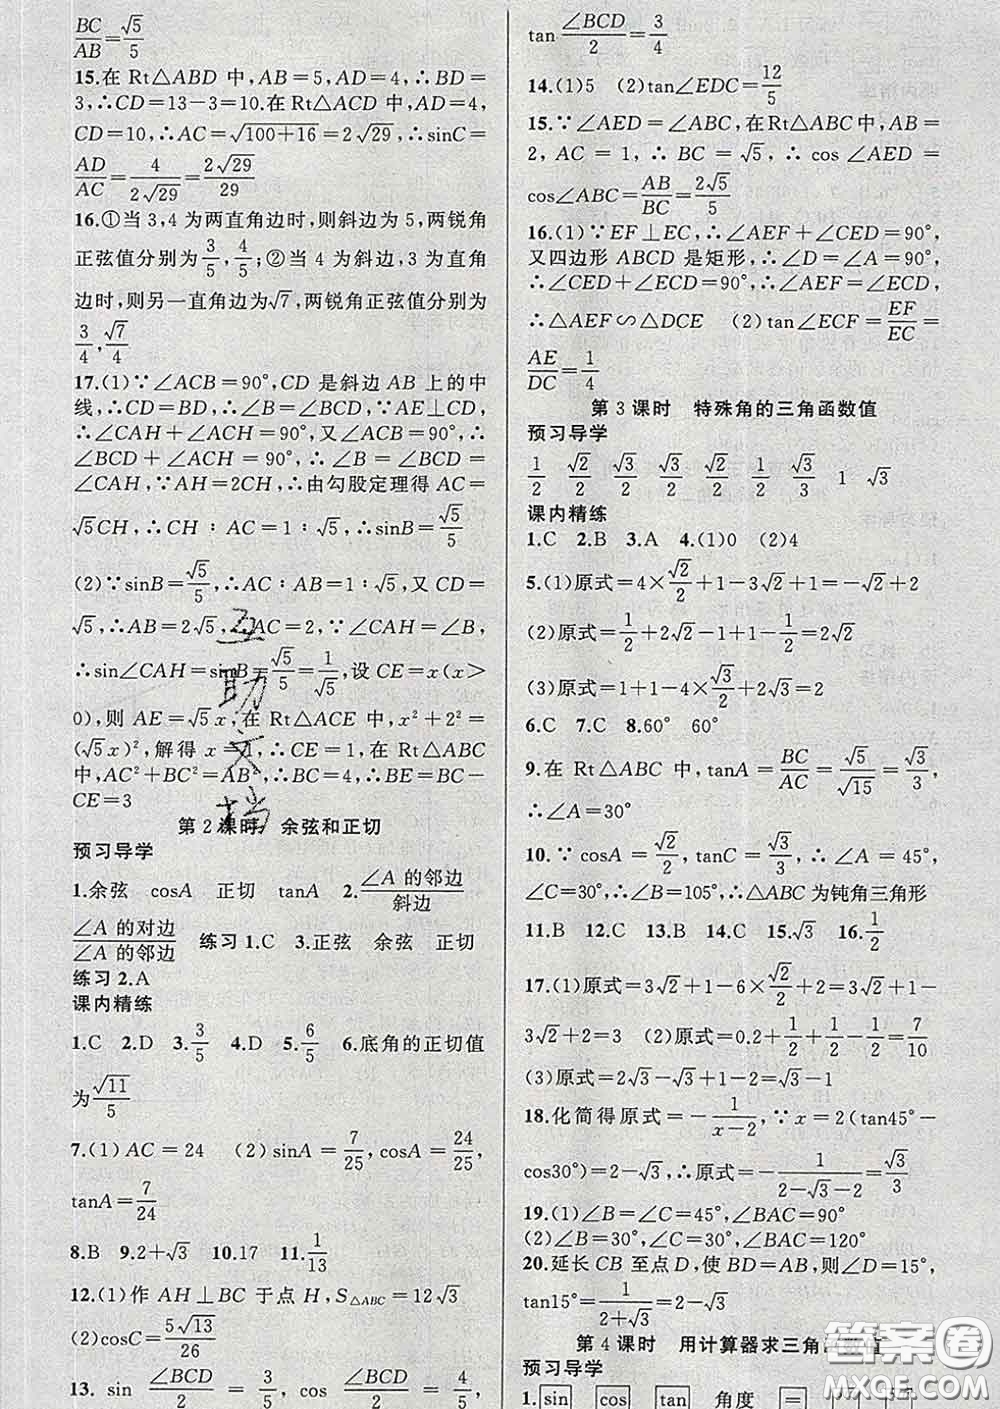 BC/AB=√5/5
15.在 Rt△ABD 中,AB=5,AD=4,∴BD=
3,∴CD=13-3=10.在Rt△ACD 中,AD=4,
CD=10,∴AC=√(100+16)=2√29,∴sinC=
AD/AC=4/(2√29)=2√29/29
16.①当 3,4 为两直角边时,则斜边为 5,两锐角
正弦值分别为3/5,4/5;②当 4 为斜边,3 为直角
边时,则另一直角边为√7,两锐角正弦值分别为
3/4,√7/4
17.(1)∵∠ACB=90°,CD 是斜边 AB 上的中
线,∴CD=BD,∴∠B=∠BCD,∵AE⊥CD,
∴∠CAH+∠ACH=90°,又∠ACB=90°,∴
∠BCD+∠ACH=90°,∴∠B=∠BCD=
∠CAH,∵AH=2CH,∴由勾股定理得 AC=
√5CH,∴CH∶AC=1∶√5,∴sinB=√5/5
(2)∵sinB=√5/5,∴AC∶AB=1∶√5,又 CD=
√5,∴AB=2√5,∴AC=2,∵∠CAH=∠B,
∴sin∠CAH=sinB=√5/5=1/√5,设 CE=x(x>
0),则 AE=√5x,在 Rt△ACE 中,x²+2²=
(√5x)²,解得 x=1,∴CE=1,在 Rt△ABC
中,AC²+BC²=AB²,∴BC=4,∴BE=BC-
CE=3
第 2 课时 余弦和正切
预习导学
1.余弦 cosA 正切 tanA 2.∠A 的邻边/斜边
∠A 的对边/∠A 的邻边 练习1.C 3.正弦 余弦 正切
练习2.A
课内精练
1.C 2.D 3.3/5 4.D 5.6/5 6.底角的正切值
为√11/5
7.(1)AC=24 (2)sinA=7/25,cosA=24/25,
tanA=7/24
8.B 9.2+√3 10.17 11.1/13
12.(1)作 AH⊥BC 于点 H,S△ABC=12√3
(2)cosC=5√13/26
13. sin ∠BCD/2=3/5, cos ∠BCD/2=4/5,
tan ∠BCD/2=3/4
14.(1)5 (2)tan∠EDC=12/5
15.∵∠AED=∠ABC,在Rt△ABC中,AB=
2,AC=1,∴BC=√5,∴cos∠AED=
cos∠ABC=AB/BC=2√5/5
16.(1)∵EF⊥EC,∴∠AEF+∠CED=90°,
又四边形 ABCD 是矩形,∴∠D=∠A=90°,
∴∠CED+∠ECD=90°,∴∠AEF=∠ECD,
∴△AEF∽△DCE (2)tan∠ECF=EF/EC=
AE/DC=1/4
第 3 课时 特殊角的三角函数值
预习导学
1/2 √2/2 √3/2 √3/2 √2/2 1/2 √3/3 1 √3
课内精练
1.C 2.B 3.A 4.(1)0 (2)4
5.(1)原式=4×√2/2+1-3√2+1=-√2+2
(2)原式=1/2+2√2-1+1-1/2=2√2
(3)原式=1+1-4×√3/2+2√3=2
6.C 7.C 8.60° 60°
9.在 Rt△ABC 中,tanA=BC/AC=√5/√15=√3/3,
∴∠A=30°
10.∵cosA=√2/2,tanC=√3/3,∴∠A=45°,
∠C=30°,∴∠B=105°,∴△ABC为钝角三角形
11.B 12.C 13.B 14.C 15.√3 16.1/2
17.(1)原式=3√2+1-6×√2/2+2=3√2+1-
3√2+2=3 (2)原式=0.2+1/2+1/2-1/2=7/10
(3)原式=2√3-√3+1-√3=1
18.化简得原式=-1/(x-2),∵x=2(tan45°-
cos30°)=2-√3,∴原式=-1/(2-√3-2)=√3/3
19.(1)∠B=∠C=45°,∠BAC=90°
(2)∠B=∠C=30°,∠BAC=120°
20.延长 CB 至点 D,使 BD=AB,则∠D=15°,
tan15°=1/(2+√3)=2-√3
第 4 课时 用计算器求三角函数值
预习导学
1.sin cos tan 角度 =
互助文档
答案圈
MXQE.COM